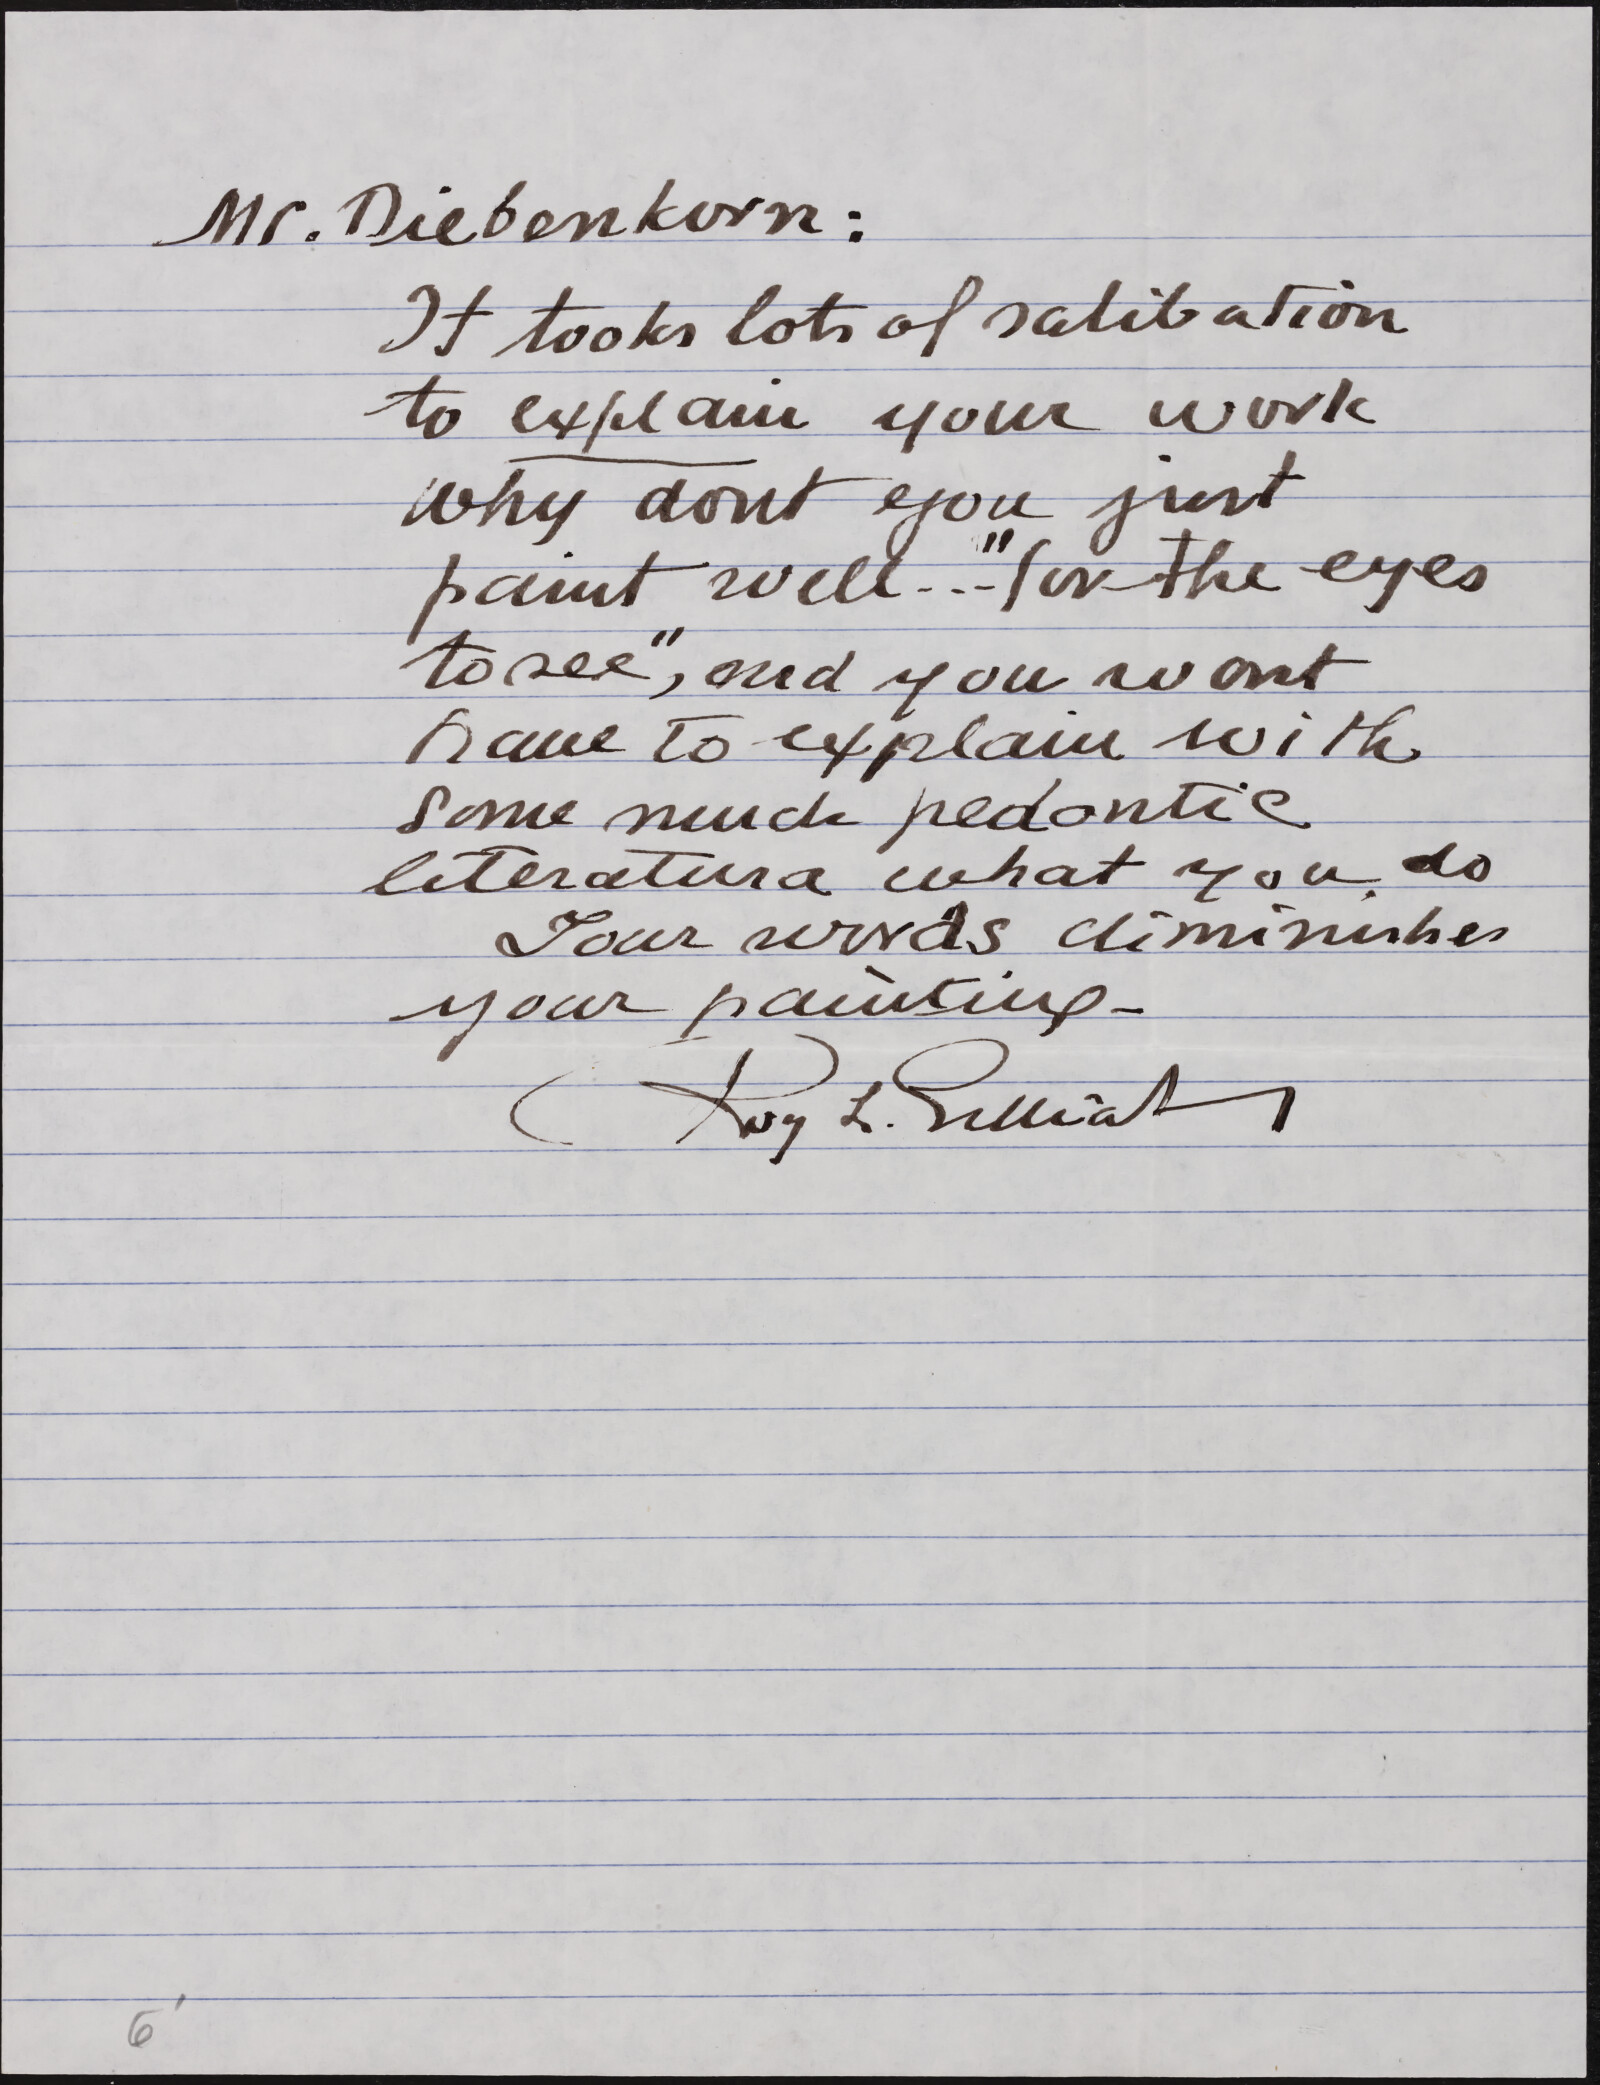 Mr. Diebenkorn:
It tooks lots of salibation
to explain your work
why dont you just
paint well... "for the eyes
to see", and you wont
have to explain with
some much pedontic
literatura what you do
Your words diminishes
your painting-
Roy L.
6'